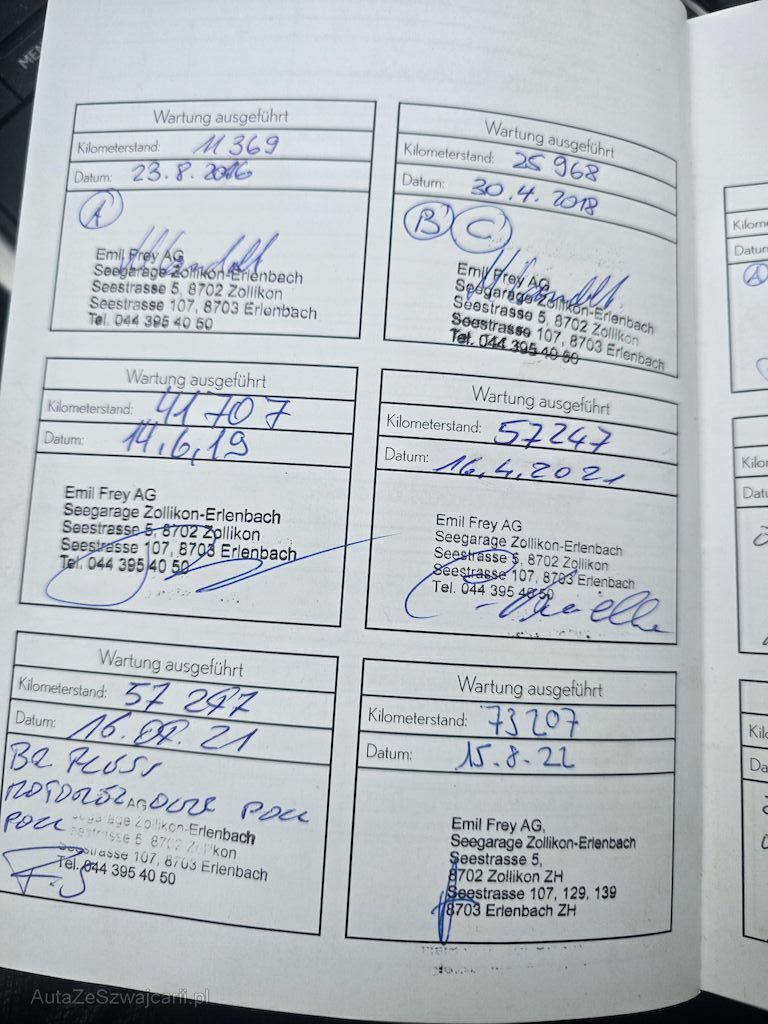 Wartung ausgeführt
Kilometerstand: 11 369
Datum: 23.8.2016
A
Emil Frey AG
Seegarage Zollikon-Erlenbach
Seestrasse 5, 8702 Zollikon
Seestrasse 107, 8703 Erlenbach
Tel. 044 395 40 50
Wartung ausgeführt
Kilometerstand: 25 968
Datum: 30.4.2018
B C
Emil Frey AG
Seegarage Zollikon-Erlenbach
Seestrasse 5, 8702 Zollikon
Seestrasse 107, 8703 Erlenbach
Tel. 044 395 40 50
Wartung ausgeführt
Kilometerstand: 41 707
Datum: 14.6.19
Emil Frey AG
Seegarage Zollikon-Erlenbach
Seestrasse 5, 8702 Zollikon
Seestrasse 107, 8703 Erlenbach
Tel. 044 395 40 50
Wartung ausgeführt
Kilometerstand: 57247
Datum: 16.4.2021
Emil Frey AG
Seegarage Zollikon-Erlenbach
Seestrasse 5, 8702 Zollikon
Seestrasse 107, 8703 Erlenbach
Tel. 044 395 40 50
Wartung ausgeführt
Kilometerstand: 57 247
Datum: 16. 21
AG
Seegarage Zollikon-Erlenbach
Seestrasse 5, 8702 Zollikon
Seestrasse 107, 8703 Erlenbach
Tel. 044 395 40 50
Wartung ausgeführt
Kilometerstand: 73207
Datum: 15.8.22
Emil Frey AG,
Seegarage Zollikon-Erlenbach
Seestrasse 5,
8702 Zollikon ZH
Seestrasse 107, 129, 139
8703 Erlenbach ZH
A
AutaZeSzwajcarii.pl